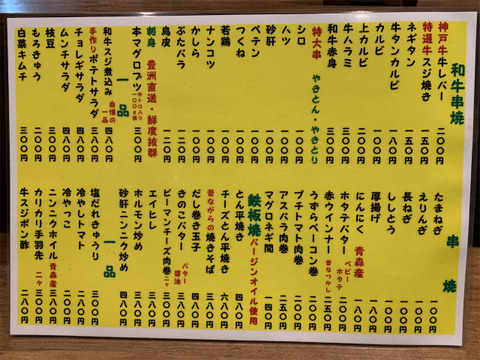 和牛串焼
神戸牛レバー 二〇〇円
特選牛スジ焼き 一五〇円
ネギタン 一五〇円
牛タンカルビ 一八〇円
カルビ
上カルビ
牛ハラミ
和牛赤身
特大串 やきとん・やきとり
シロ
ハツ
砂肝
ペテン
つくね
若鶏
ナンコツ
かしら
ぶたバラ
鳥皮
刺身 豊洲直送・鮮度抜群
本マグロブツ 三〇〇円
一品
和牛スジ煮込み 自慢の一品 四八〇円
手作りポテトサラダ 三八〇円
ムンチサラダ 四八〇円
チョレギサラダ 四八〇円
枝豆 三〇〇円
もろきゅう 二〇〇円
白菜キムチ 三〇〇円
串焼
たまねぎ
えりんぎ 一五〇円
長ねぎ 一五〇円
ししとう
厚揚げ 一八〇円
にんにく 青森産 一八〇円
ホタテバター ベビーホタテ 二〇〇円
赤ウインナー 昔なつかし 二五〇円
うずらベーコン巻
プチトマト肉巻 二〇〇円
アスパラ肉巻 二五〇円
マグロネギ間
鉄板焼 バージンオイル使用
とん平焼き 四八〇円
チーズとん平焼き 六八〇円
昔ながらの焼きそば 四八〇円
だし巻き玉子 三八〇円
きのこバター バター醤油 三八〇円
ピーマンチーズ肉巻 二ヶ
エイヒレ
ホルモン炒め
砂肝ニンニク炒め 三八〇円
一品
塩だれきゅうり 三〇〇円
冷やしトマト 三〇〇円
冷やっこ 三〇〇円
ニンニクホイル 青森産 三五〇円
カリカリ手羽先 二ヶ 三〇〇円
牛スジポン酢 三八〇円